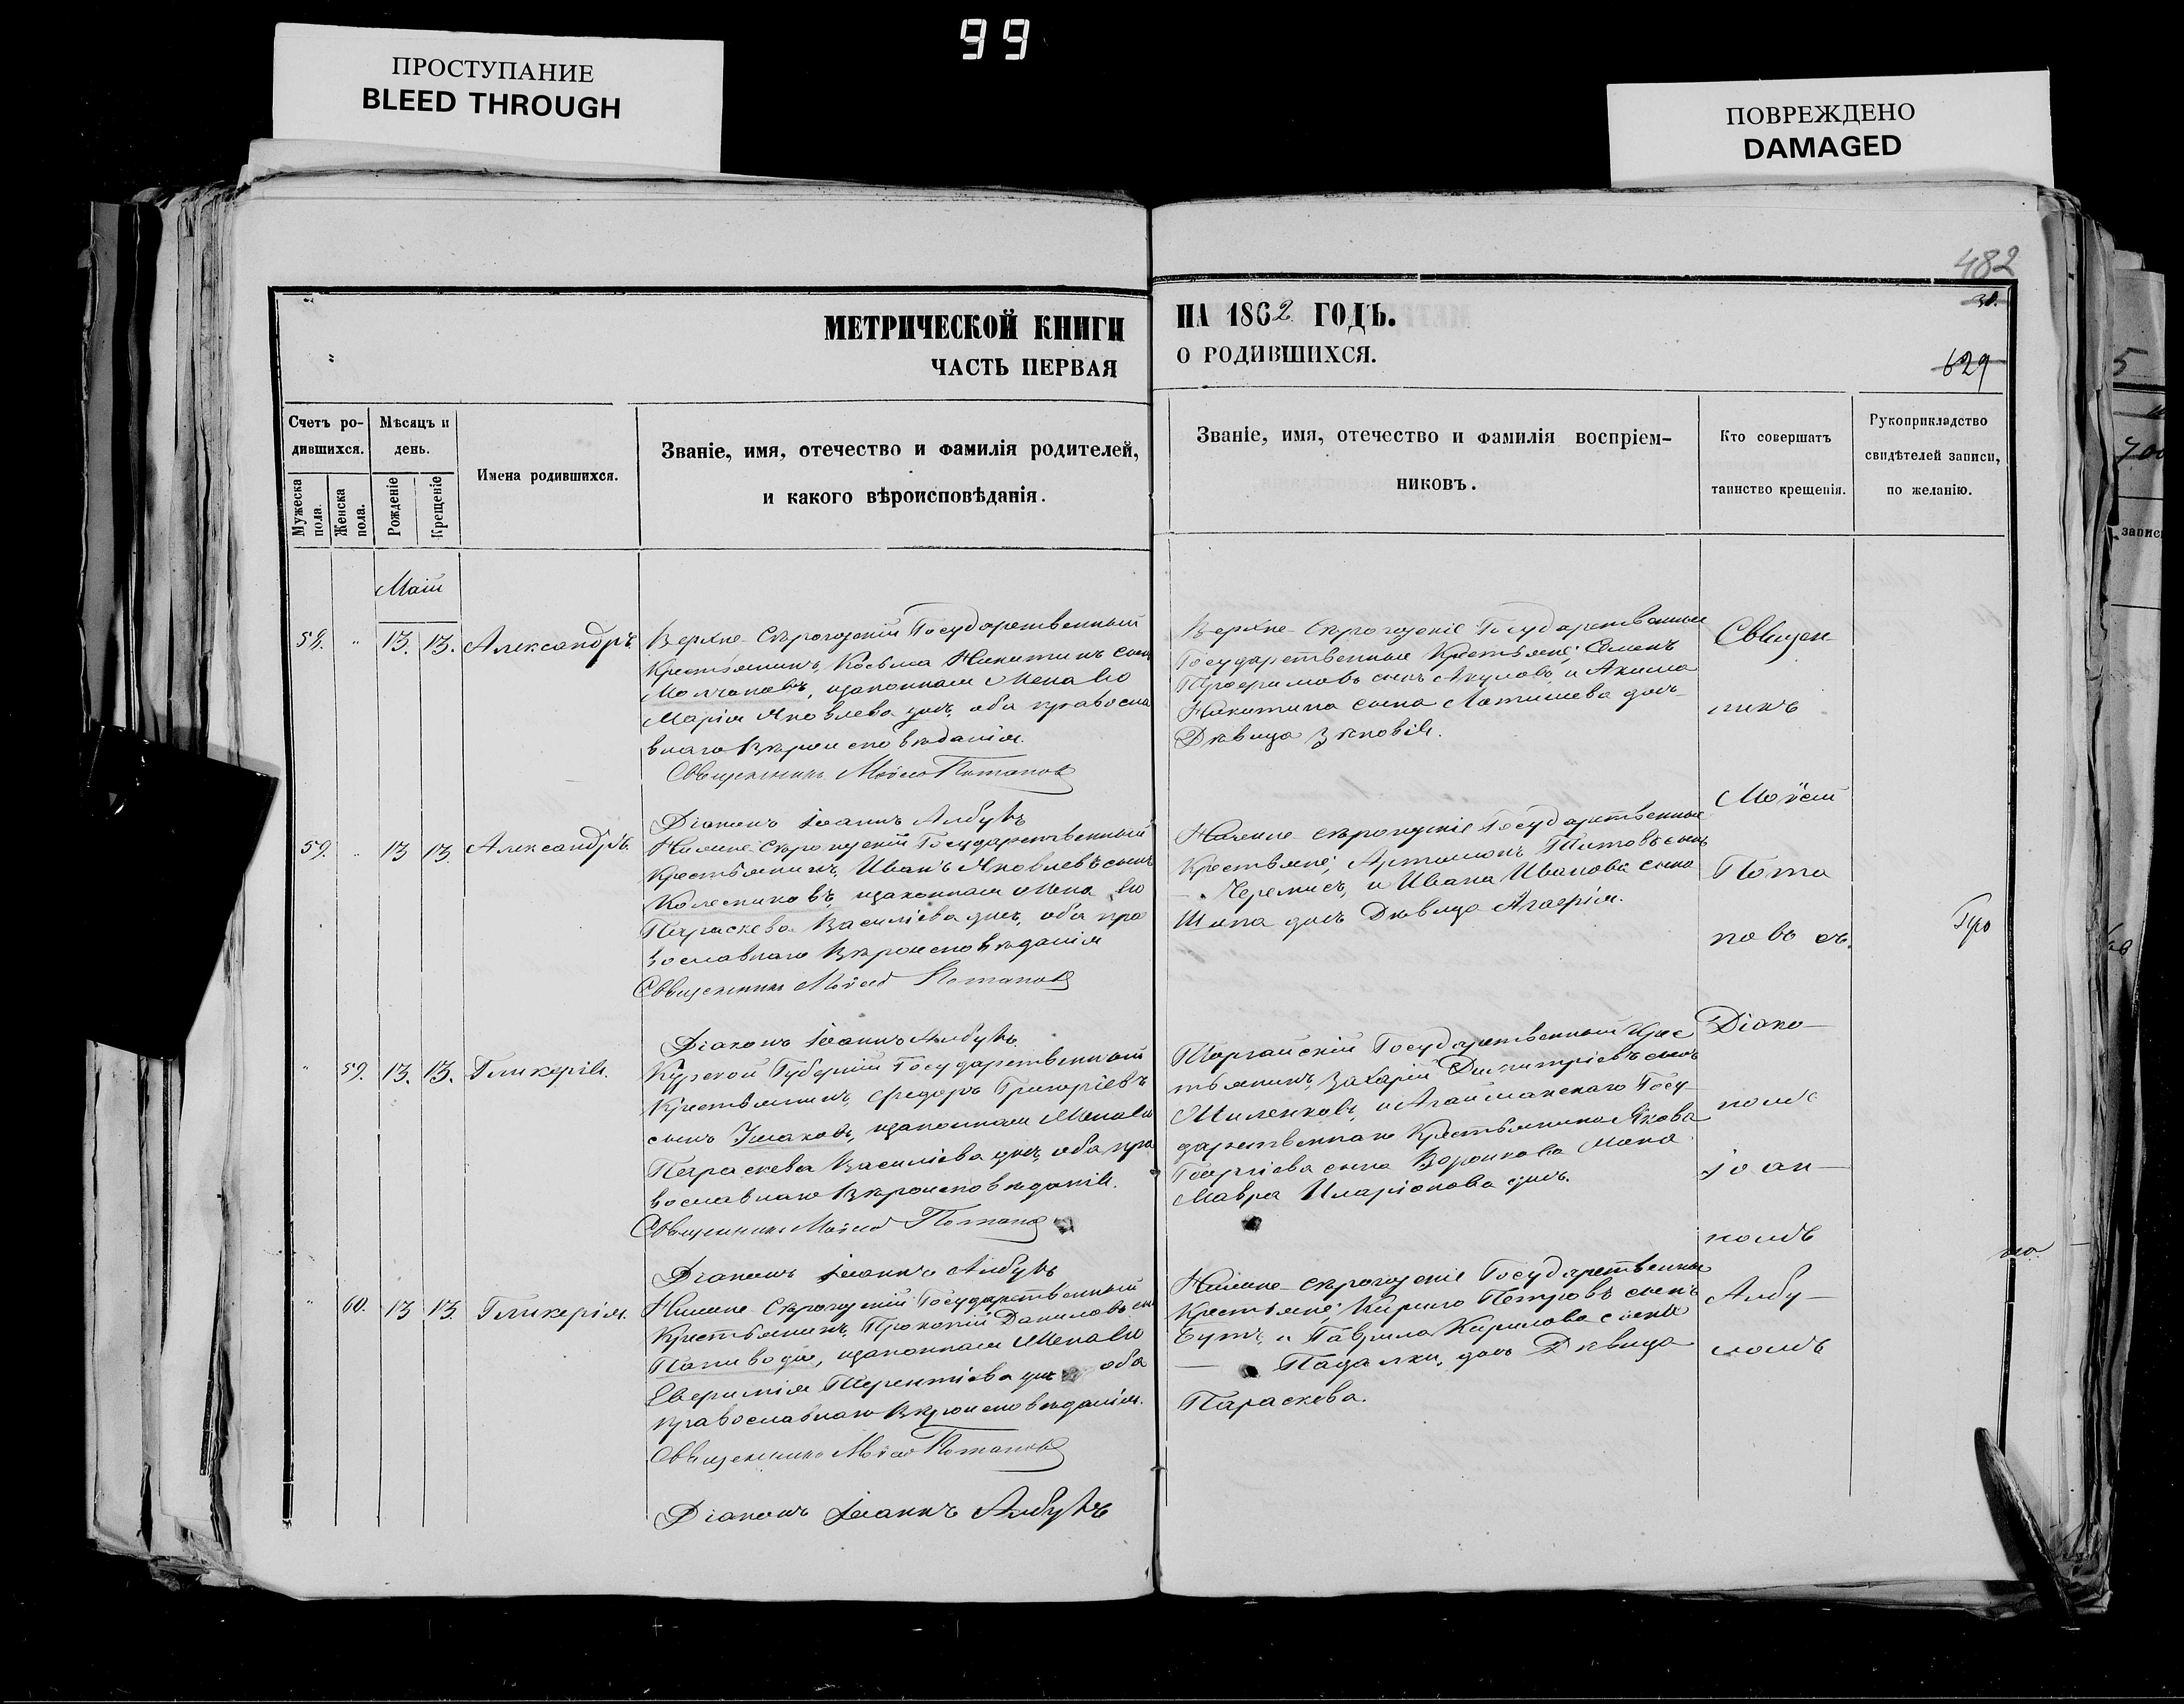 99
ПРОСТУПАНИЕ
BLEED THROUGH
ПОВРЕЖДЕНО
DAMAGED
482
30.
629
МЕТРИЧЕСКОЙ КНИГИ
ЧАСТЬ ПЕРВАЯ
НА 1862 ГОДЪ.
О РОДИВШИХСЯ.
Счетъ ро-
дившихся.
Мужеска пола.
Женска пола.
Мѣсяцъ и
день.
Рожденіе
Крещеніе
Имена родившихся.
Званіе, имя, отечество и фамилія родителей,
и какого вѣроисповѣданія.
Званіе, имя, отечество и фамилія воспріем-
никовъ.
Кто совершатъ
таинство крещенія.
Рукоприкладство
свидѣтелей записи,
по желанію.
Маій
58. " 13. 13. Александръ
Верхне-Сѣрогозскій Государственный
Крестьянинъ, Косьма Никитинъ сынъ
Молчановъ, изаконная Жена Его
Марія Яковлева дчь, оба правосла
внаго Вѣроисповѣданія.
Священникъ Моісей Потаповъ
Діаконъ Іоаннъ Албулъ
Верхне-Сѣрогозскіе Государственные
Государственные Крестьяне; Семенъ
сынъ Акуловъ, и Акима
Никитина сына Латышева дочь
Дѣвица Зѣновія.
59. " 13 13. Александръ.
Нижне-Сѣрогозскій Государственный
Крестьянинъ, Иванъ Яковлевъ сынъ
Колесниковъ, изаконная Жена Его
Параскева Василіева дчь, оба пра
вославнаго Вѣроисповѣданія
Священникъ Моісей Потаповъ
Діаконъ Іоаннъ Албулъ
Нижне-Сѣрогозскіе Государственные
Крестьяне; Артамонъ Титовъ сынъ
Черемисъ, и Ивана Иванова сына
Шипа дчь Дѣвица Агафія.
" 59. 13. 13. Гликерія.
Курской Губерніи Государственный
Крестьянинъ, Феодоръ Григоріевъ
сынъ Ушаковъ, изаконная Жена Его
Параскева Василіева дчь, оба пра
вославнаго Вѣроисповѣданія.
Священникъ Моісей Потапов
Діаконъ Іоаннъ Албулъ
Торгайскій Государственный Крес
тьянинъ, Захарій Димитріевъ сынъ
Миленковъ, и Агайманскаго Госу-
дарственнаго Крестьянина Якова
Георгіева сына Воронкова Жена
Мавра Иларіонова дчь.
" 60. 13 13. Гликерія.
Нижне-Сѣрогозскій Государственный
Крестьянинъ, Прокопій Даниловъ сн
Паливода, изаконная Жена Его
Евфимія Терентіева дчь оба
православнаго Вѣроисповѣданія.
Священникъ Моісей Потаповъ
Діаконъ Іоаннъ Албулъ
Нижне-Сѣрогозскіе Государственные
Крестьяне; Кирило Петровъ сынъ
Бутъ, и Гаврила Кирилова сына
Падалки, дчь Дѣвица
Параскева.
Священ
никъ
Моісей
Пота
повъ съ.
Діако-
номъ
Іоан-
номъ
Албу-
ломъ